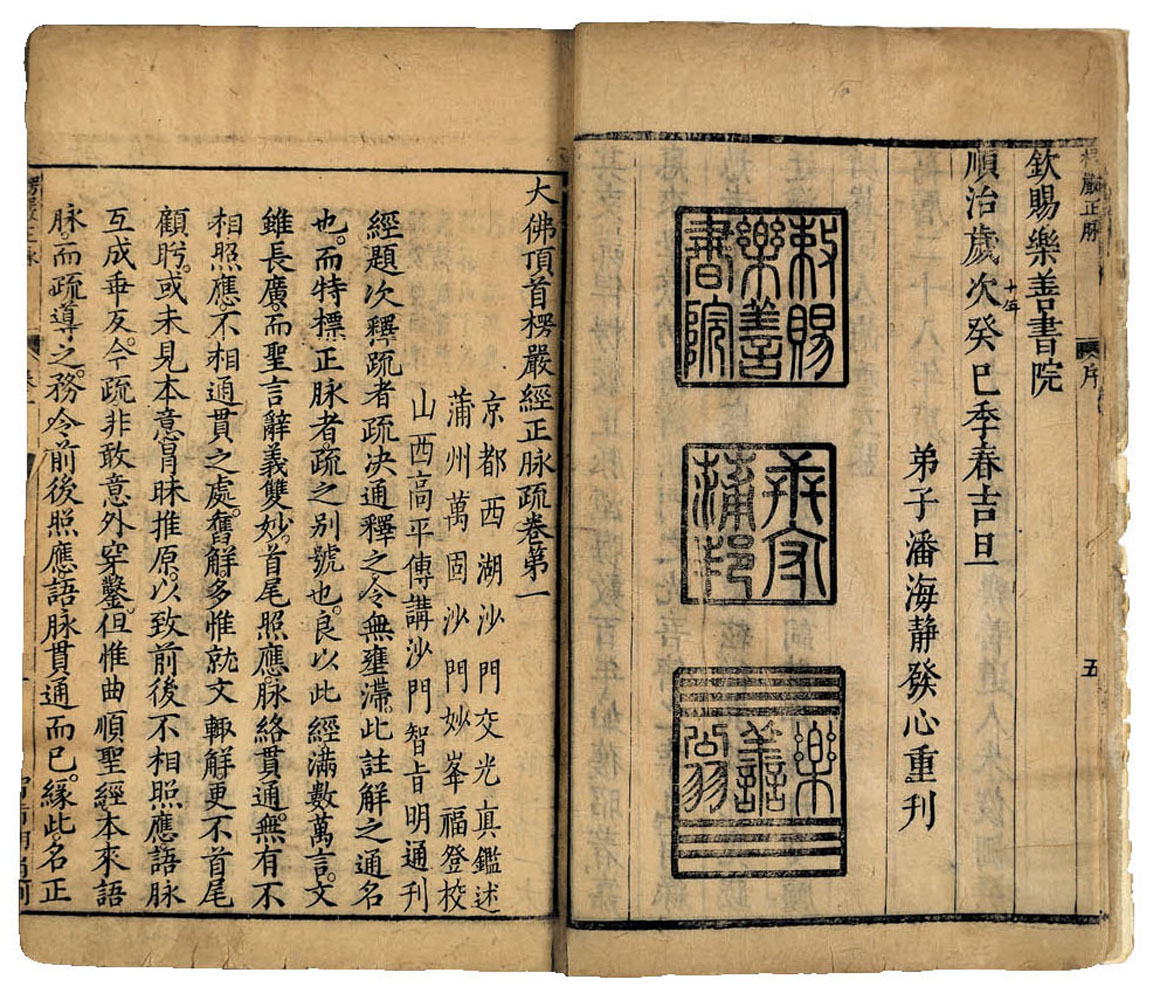 楞嚴正脉
序
五
欽賜樂善書院
順治歲次癸巳季春吉旦
十年
弟子潘海静發心重刊
敕賜樂善書院
蒲邦
樂善翁
大佛頂首楞嚴經正脉疏卷第一
京都西湖沙門交光真鑑述
蒲州萬固沙門妙峯福登校
山西高平傳講沙門智旹明通刊
經題次釋疏者疏决通釋之令無壅滯。此註解之通名
也。而特標正脉者。疏之别號也。良以此經滿數萬言。文
雖長廣。而聖言辭義雙妙。首尾照應。脉絡貫通。無有不
相照應。不相通貫之處。舊解多惟就文輙解更不首尾
顧盻。或未見本意。冐昧推原。以致前後不相照應。語脉
互成乖反。今疏非敢意外穿鑿。但惟曲順聖經本來語
脉。而疏導之。務令前後照應。語脉貫通而已。緣此。名正
楞嚴正脉